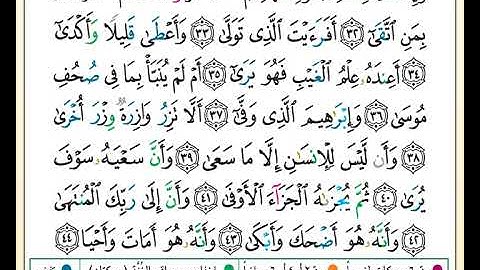 بِمَنِ ٱتَّقَىٰٓ ٣٢ أَفَرَءَيْتَ ٱلَّذِى تَوَلَّىٰ ٣٣ وَأَعْطَىٰ قَلِيلًا وَأَكْدَىٰٓ
٣٤ أَعِندَهُۥ عِلْمُ ٱلْغَيْبِ فَهُوَ يَرَىٰٓ ٣٥ أَمْ لَمْ يُنَبَّأْ بِمَا فِى صُحُفِ
مُوسَىٰ ٣٦ وَإِبْرَٰهِيمَ ٱلَّذِى وَفَّىٰٓ ٣٧ أَلَّا تَزِرُ وَازِرَةٌ وِزْرَ أُخْرَىٰ
٣٨ وَأَن لَّيْسَ لِلْإِنسَٰنِ إِلَّا مَا سَعَىٰ ٣٩ وَأَنَّ سَعْيَهُۥ سَوْفَ
يُرَىٰ ٤٠ ثُمَّ يُجْزَىٰهُ ٱلْجَزَآءَ ٱلْأَوْفَىٰ ٤١ وَأَنَّ إِلَىٰ رَبِّكَ ٱلْمُنتَهَىٰ
٤٢ وَأَنَّهُۥ هُوَ أَضْحَكَ وَأَبْكَىٰ ٤٣ وَأَنَّهُۥ هُوَ أَمَاتَ وَأَحْيَا ٤٤